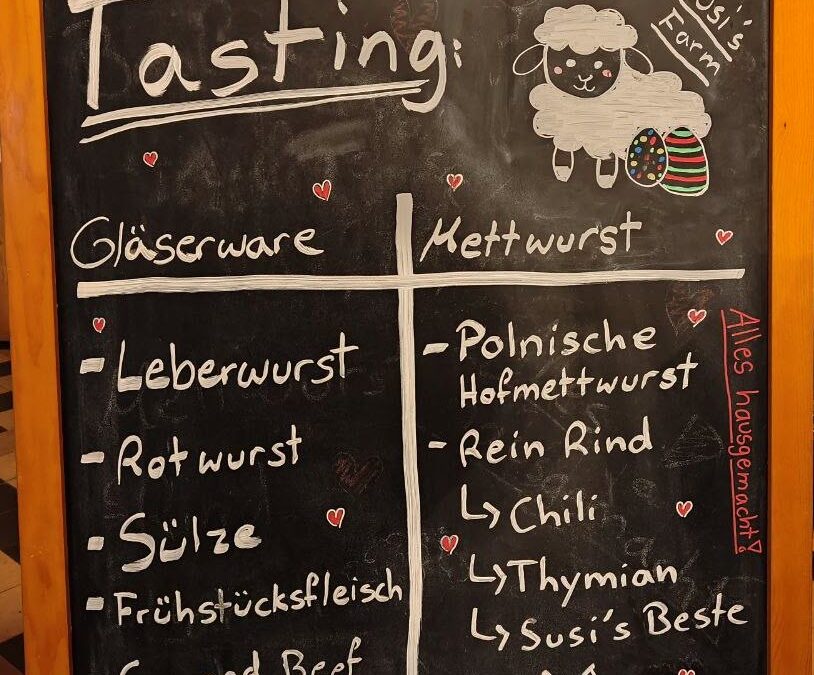 Tasting:
Susi's
Farm
Gläserware
Mettwurst
- Leberwurst
- Rotwurst
- Sülze
- Frühstücksfleisch
Beef
- Polnische
Hofmettwurst
- Rein Rind
↳ Chili
↳ Thymian
↳ Susi's Beste
Alles hausgemacht!